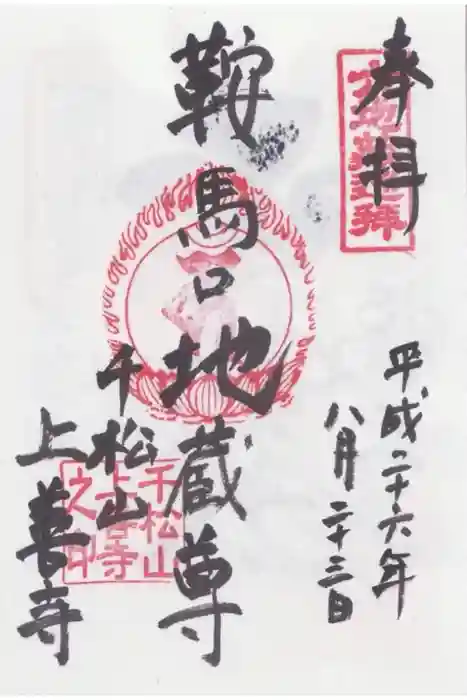 奉拝
平成二十六年
八月二十三日
鞍馬口地蔵尊
千松山
上善寺
千松山
上善寺
之印